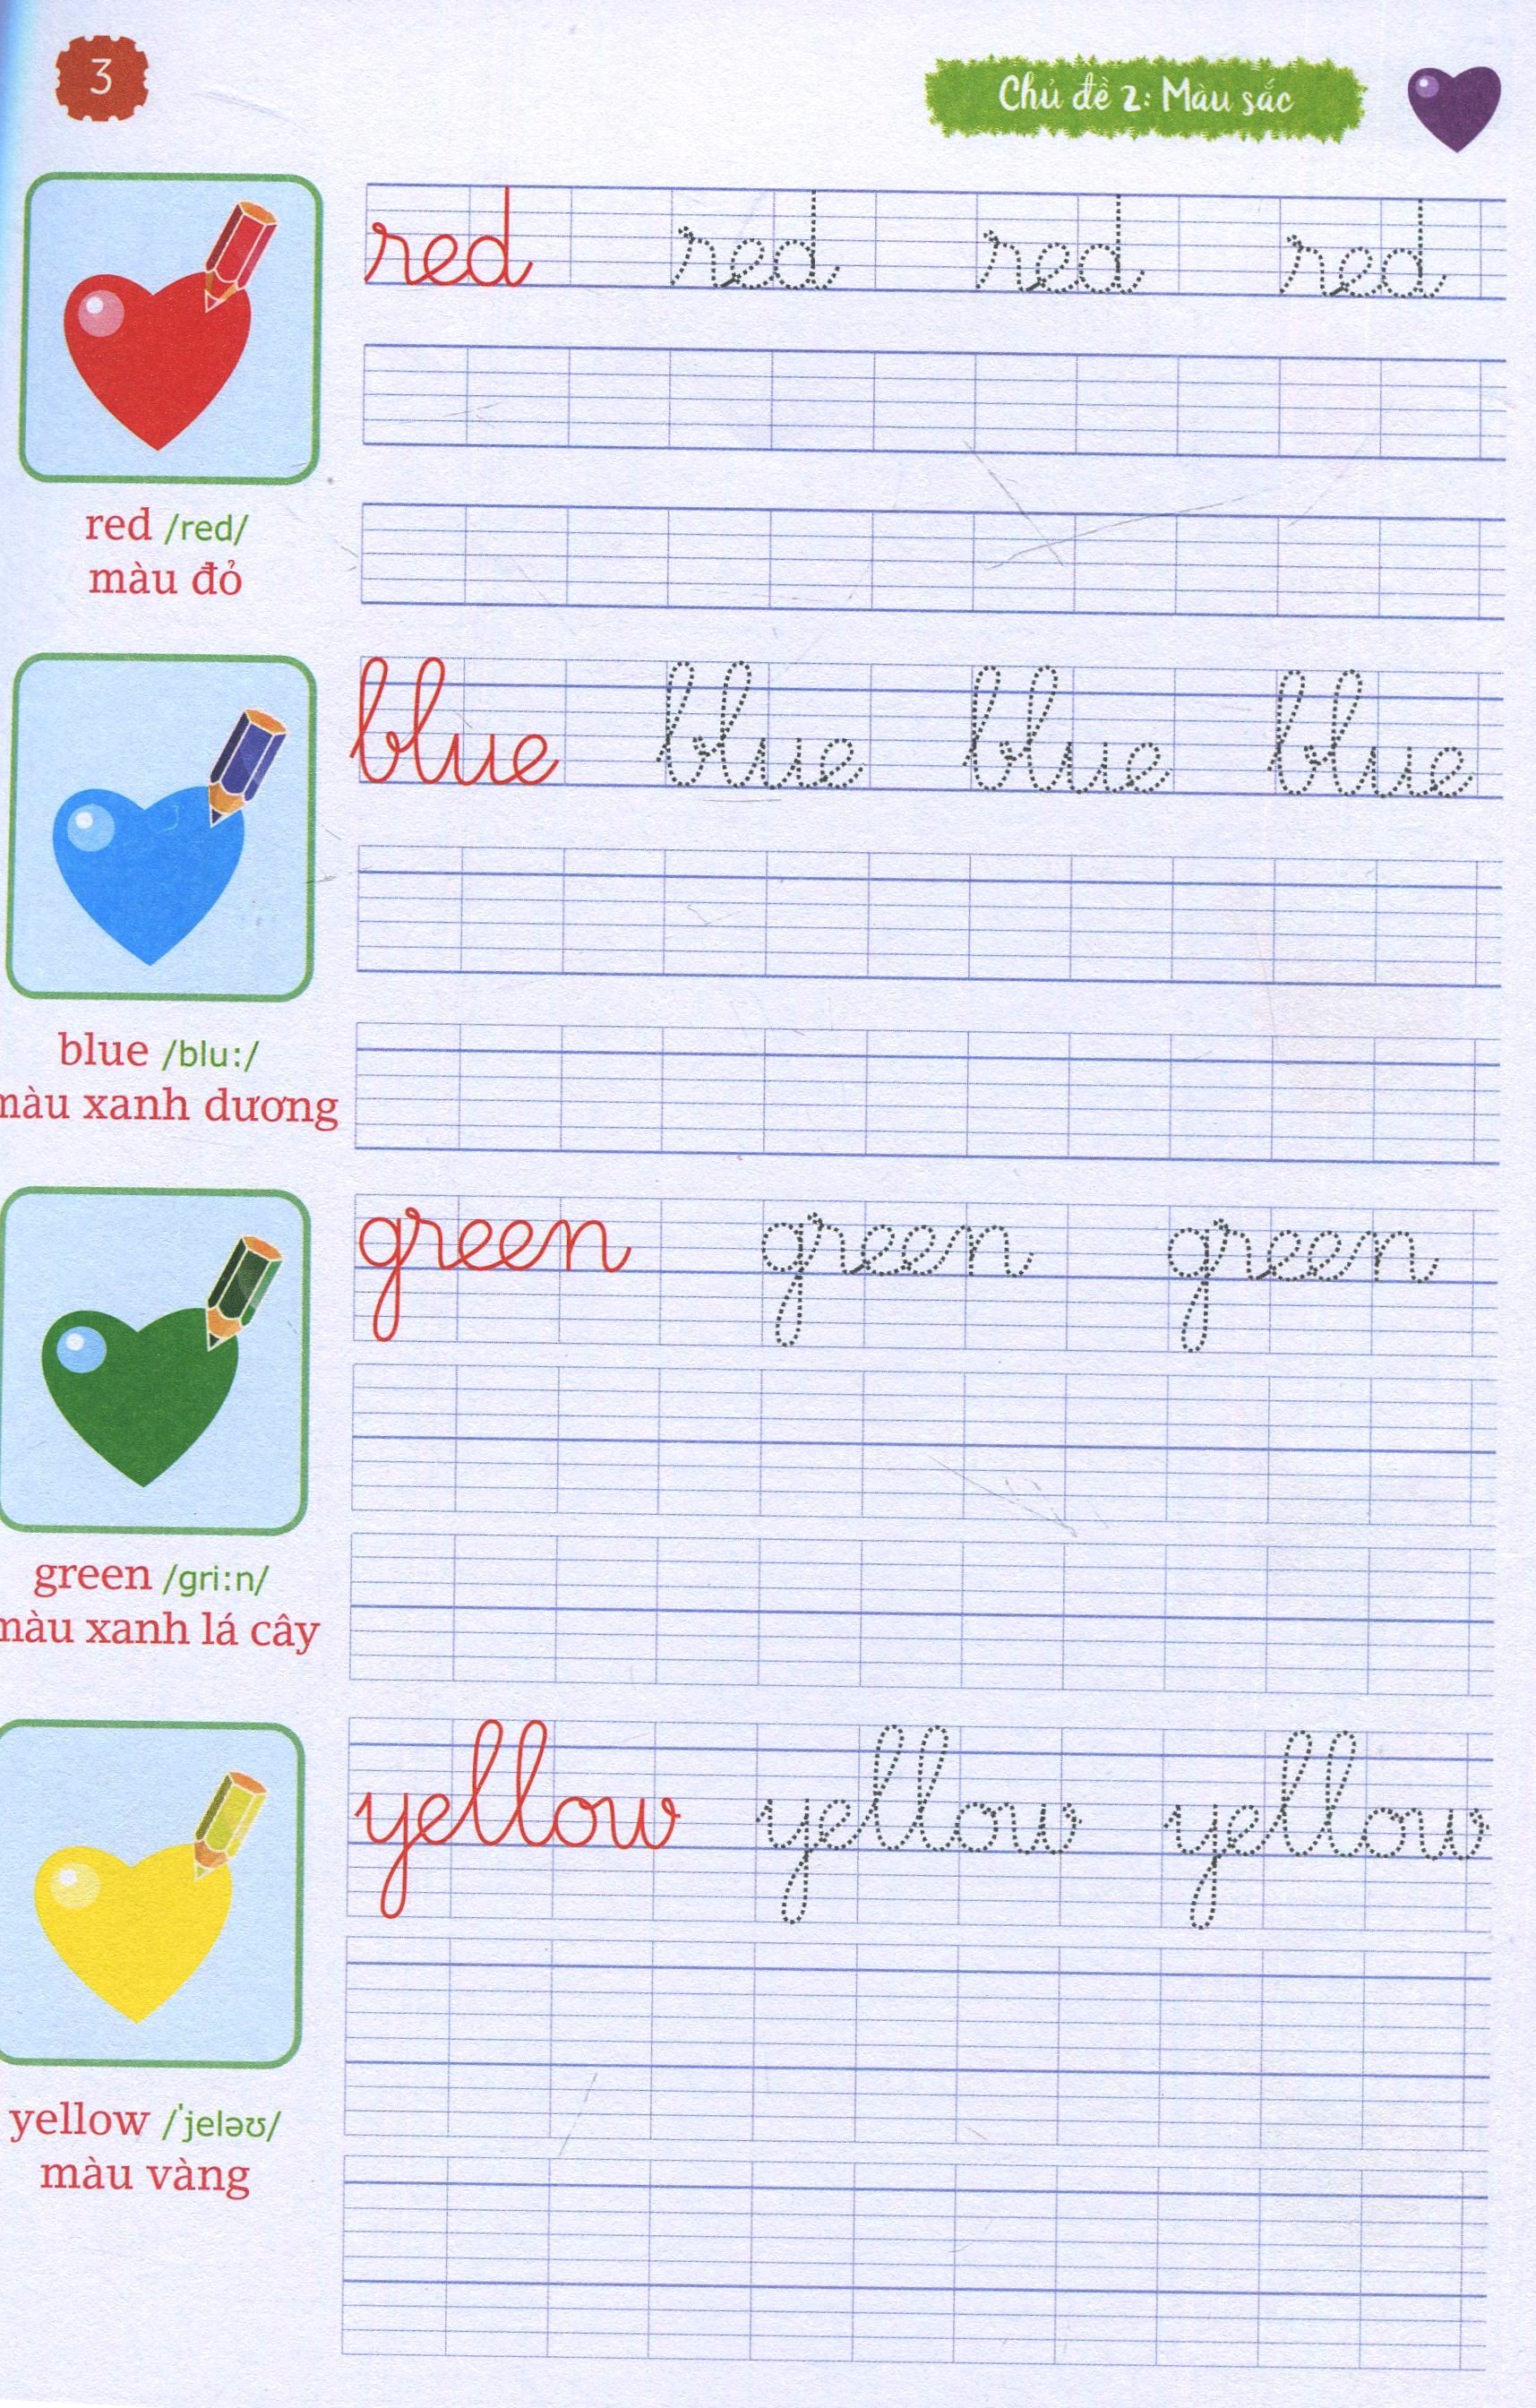 3
Chủ đề 2: Màu sắc
red red red red
red /red/
màu đỏ
blue blue blue blue
blue /blu:/
màu xanh dương
green green green
green /gri:n/
màu xanh lá cây
yellow yellow yellow
yellow /ˈjeləʊ/
màu vàng